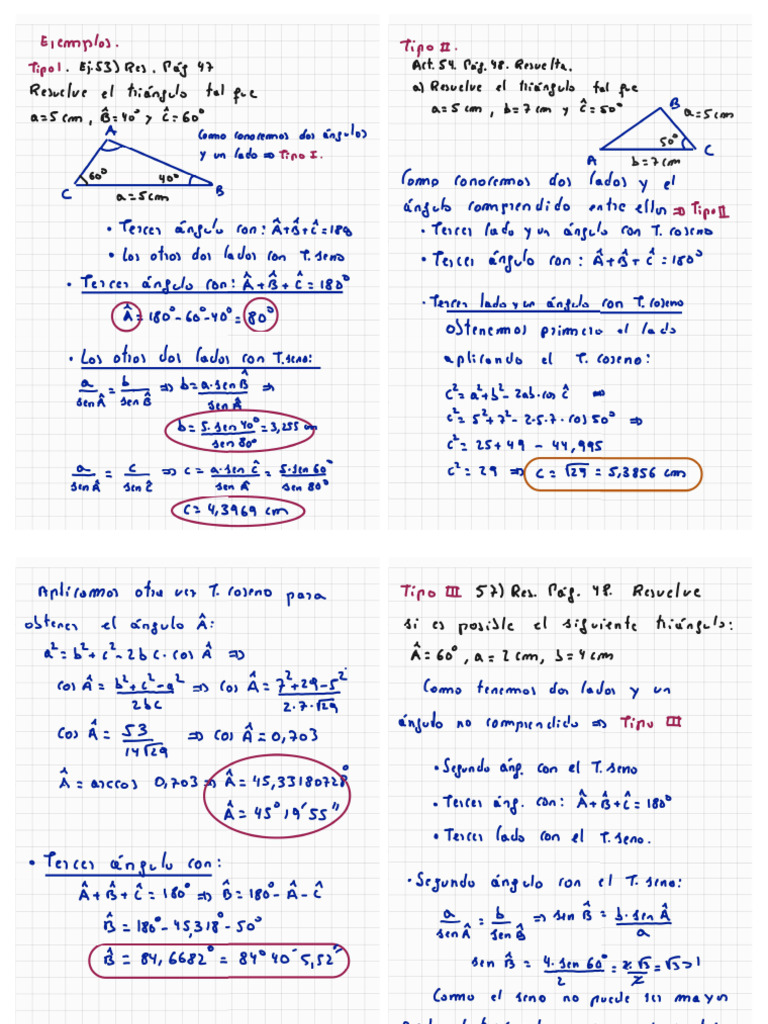 Ejemplos.
Tipo I. Ej.53) Res. Pág 47
Resuelve el triángulo tal que
a=5cm, B̂=40° y Ĉ=60°
A
Como conocemos dos ángulos
y un lado ⇒ Tipo I.
60°
40°
C
B
a=5cm
• Tercer ángulo con: Â+B̂+Ĉ=180
• Los otros dos lados con T. seno
• Tercer ángulo con: Â+B̂+Ĉ=180°
Â=180°-60°-40°=80°
• Los otros dos lados con T. seno:
a/senÂ = b/senB̂ ⇒ b = a·senB̂/senÂ ⇒
b = 5·sen40°/sen80° = 3,255 cm
a/senÂ = c/senĈ ⇒ c = a·senĈ/senÂ = 5·sen60°/sen80°
c=4,3969 cm
Tipo II.
Act.54. Pág.48. Resuelta.
a) Resuelve el triángulo tal que
a=5cm, b=7cm y Ĉ=50°
B
a=5cm
50°
A
C
b=7cm
Como conocemos dos lados y el
ángulo comprendido entre ellos ⇒ Tipo II
• Tercer lado y un ángulo con T. coseno
• Tercer ángulo con: Â+B̂+Ĉ=180°
• Tercer lado y un ángulo con T. coseno
obtenemos primero el lado
aplicando el T. coseno:
c²=a²+b²-2ab·cosĈ ⇒
c²=5²+7²-2·5·7·cos50° ⇒
c²=25+49-44,995
c²=29 ⇒ c=√29=5,3856 cm
Aplicamos otra vez T. coseno para
obtener el ángulo Â:
a²=b²+c²-2bc·cosÂ ⇒
cosÂ = b²+c²-a²/2bc ⇒ cosÂ = 7²+29-5²/2·7·√29
cosÂ = 53/14√29 ⇒ cosÂ=0,703
Â=arccos 0,703 ⇒ Â=45,33180728°
Â=45°19'55''
• Tercer ángulo con:
Â+B̂+Ĉ=180° ⇒ B̂=180°-Â-Ĉ
B̂=180°-45,318°-50°
B̂=84,6682°=84°40'5,52''
Tipo III 57) Res. Pág. 48. Resuelve
si es posible el siguiente triángulo:
Â=60°, a=2cm, b=4cm
Como tenemos dos lados y un
ángulo no comprendido ⇒ Tipo III
• Segundo áng. con el T. seno
• Tercer áng. con: Â+B̂+Ĉ=180°
• Tercer lado con el T. seno.
• Segundo ángulo con el T. seno:
a/senÂ = b/senB̂ ⇒ senB̂ = b·senÂ/a
senB̂ = 4·sen60°/2 = 2·√3/2 = √3>1
Como el seno no puede ser mayor